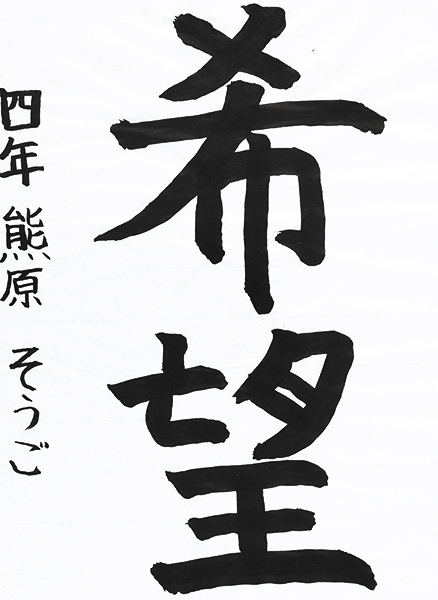 希望
四年 熊原 そうご